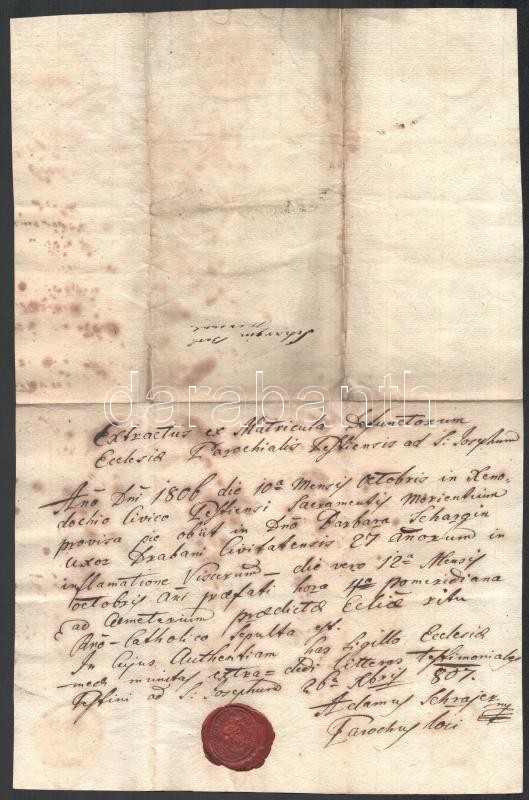 darabanth
Extractus ex Matricula Defunctorum
Ecclesiæ Parochialis Pestiensis ad S: Josephum
Año Dñi 1806 die 10a Mensis Octobris in Xeno-
dochio Civico Pestiensi Sacramentis Morientium
provisa pie obiit in Dño Barbara Schargin
uxor Drabani Civitatensis 27 añorum in
inflamatione Viscerum – die vero 12a Mensis
octobris añi præfati hora 4a pomeridiana
ad Cæmeterium prædictæ Ecliæ ritu
Catholico Sepulta est.
In Cujus Authentiam has Sigillo Ecclesiæ
meæ munitas extra= dedi litteras testimoniales
Pestini ad S: Josephum 26a Xbris 807.
Adamus Schraser mp
Parochus loci